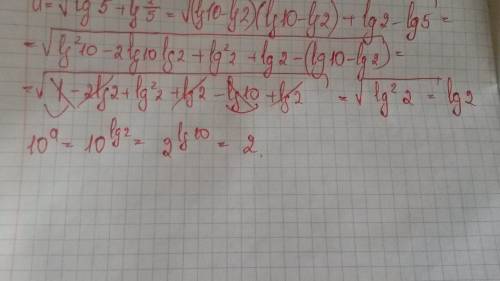 a = √(lg²5 + lg 2/5) = √((lg10-lg2)(lg10-lg2) + lg2 - lg5) =
= √(lg²10 - 2lg10 lg2 + lg²2 + lg2 - (lg10 - lg2)) =
= √(1 - 2lg2 + lg²2 + lg2 - lg10 + lg2) = √(lg²2) = lg2
10^a = 10^lg2 = 2^lg10 = 2.